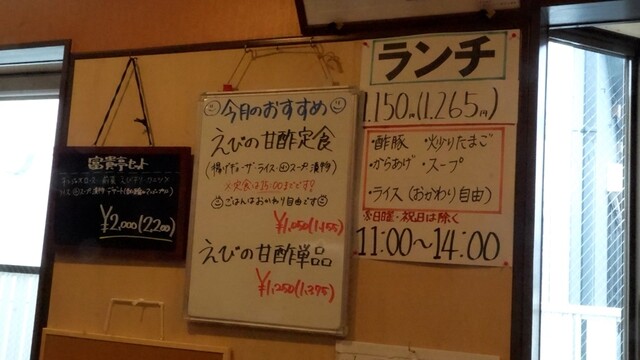 富貴亭セット
¥2,000(2,200)
今月のおすすめ
えびの甘酢定食
(揚げギョーザ・ライス・スープ・漬物)
※定食は15:00までです?
ごはんはおかわり自由です
¥1,050(1,155)
えびの甘酢単品
¥1,250(1,375)
ランチ
1,150円(1,265円)
・酢豚 ・炒りたまご
・からあげ ・スープ
・ライス(おかわり自由)
※日曜・祝日は除く
11:00~14:00